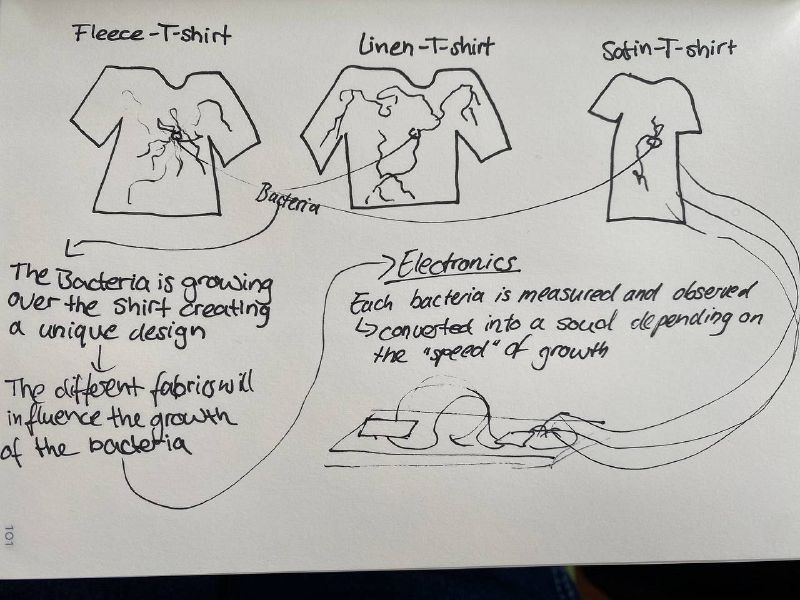 Fleece-T-shirt
Linen-T-shirt
Satin-T-shirt
Bacteria
The Bacteria is growing
over the shirt creating
a unique design
The different fabrics will
influence the growth
of the bacteria
Electronics
Each bacteria is measured and observed
↳ converted into a soud depending on
the "speed" of growth
101